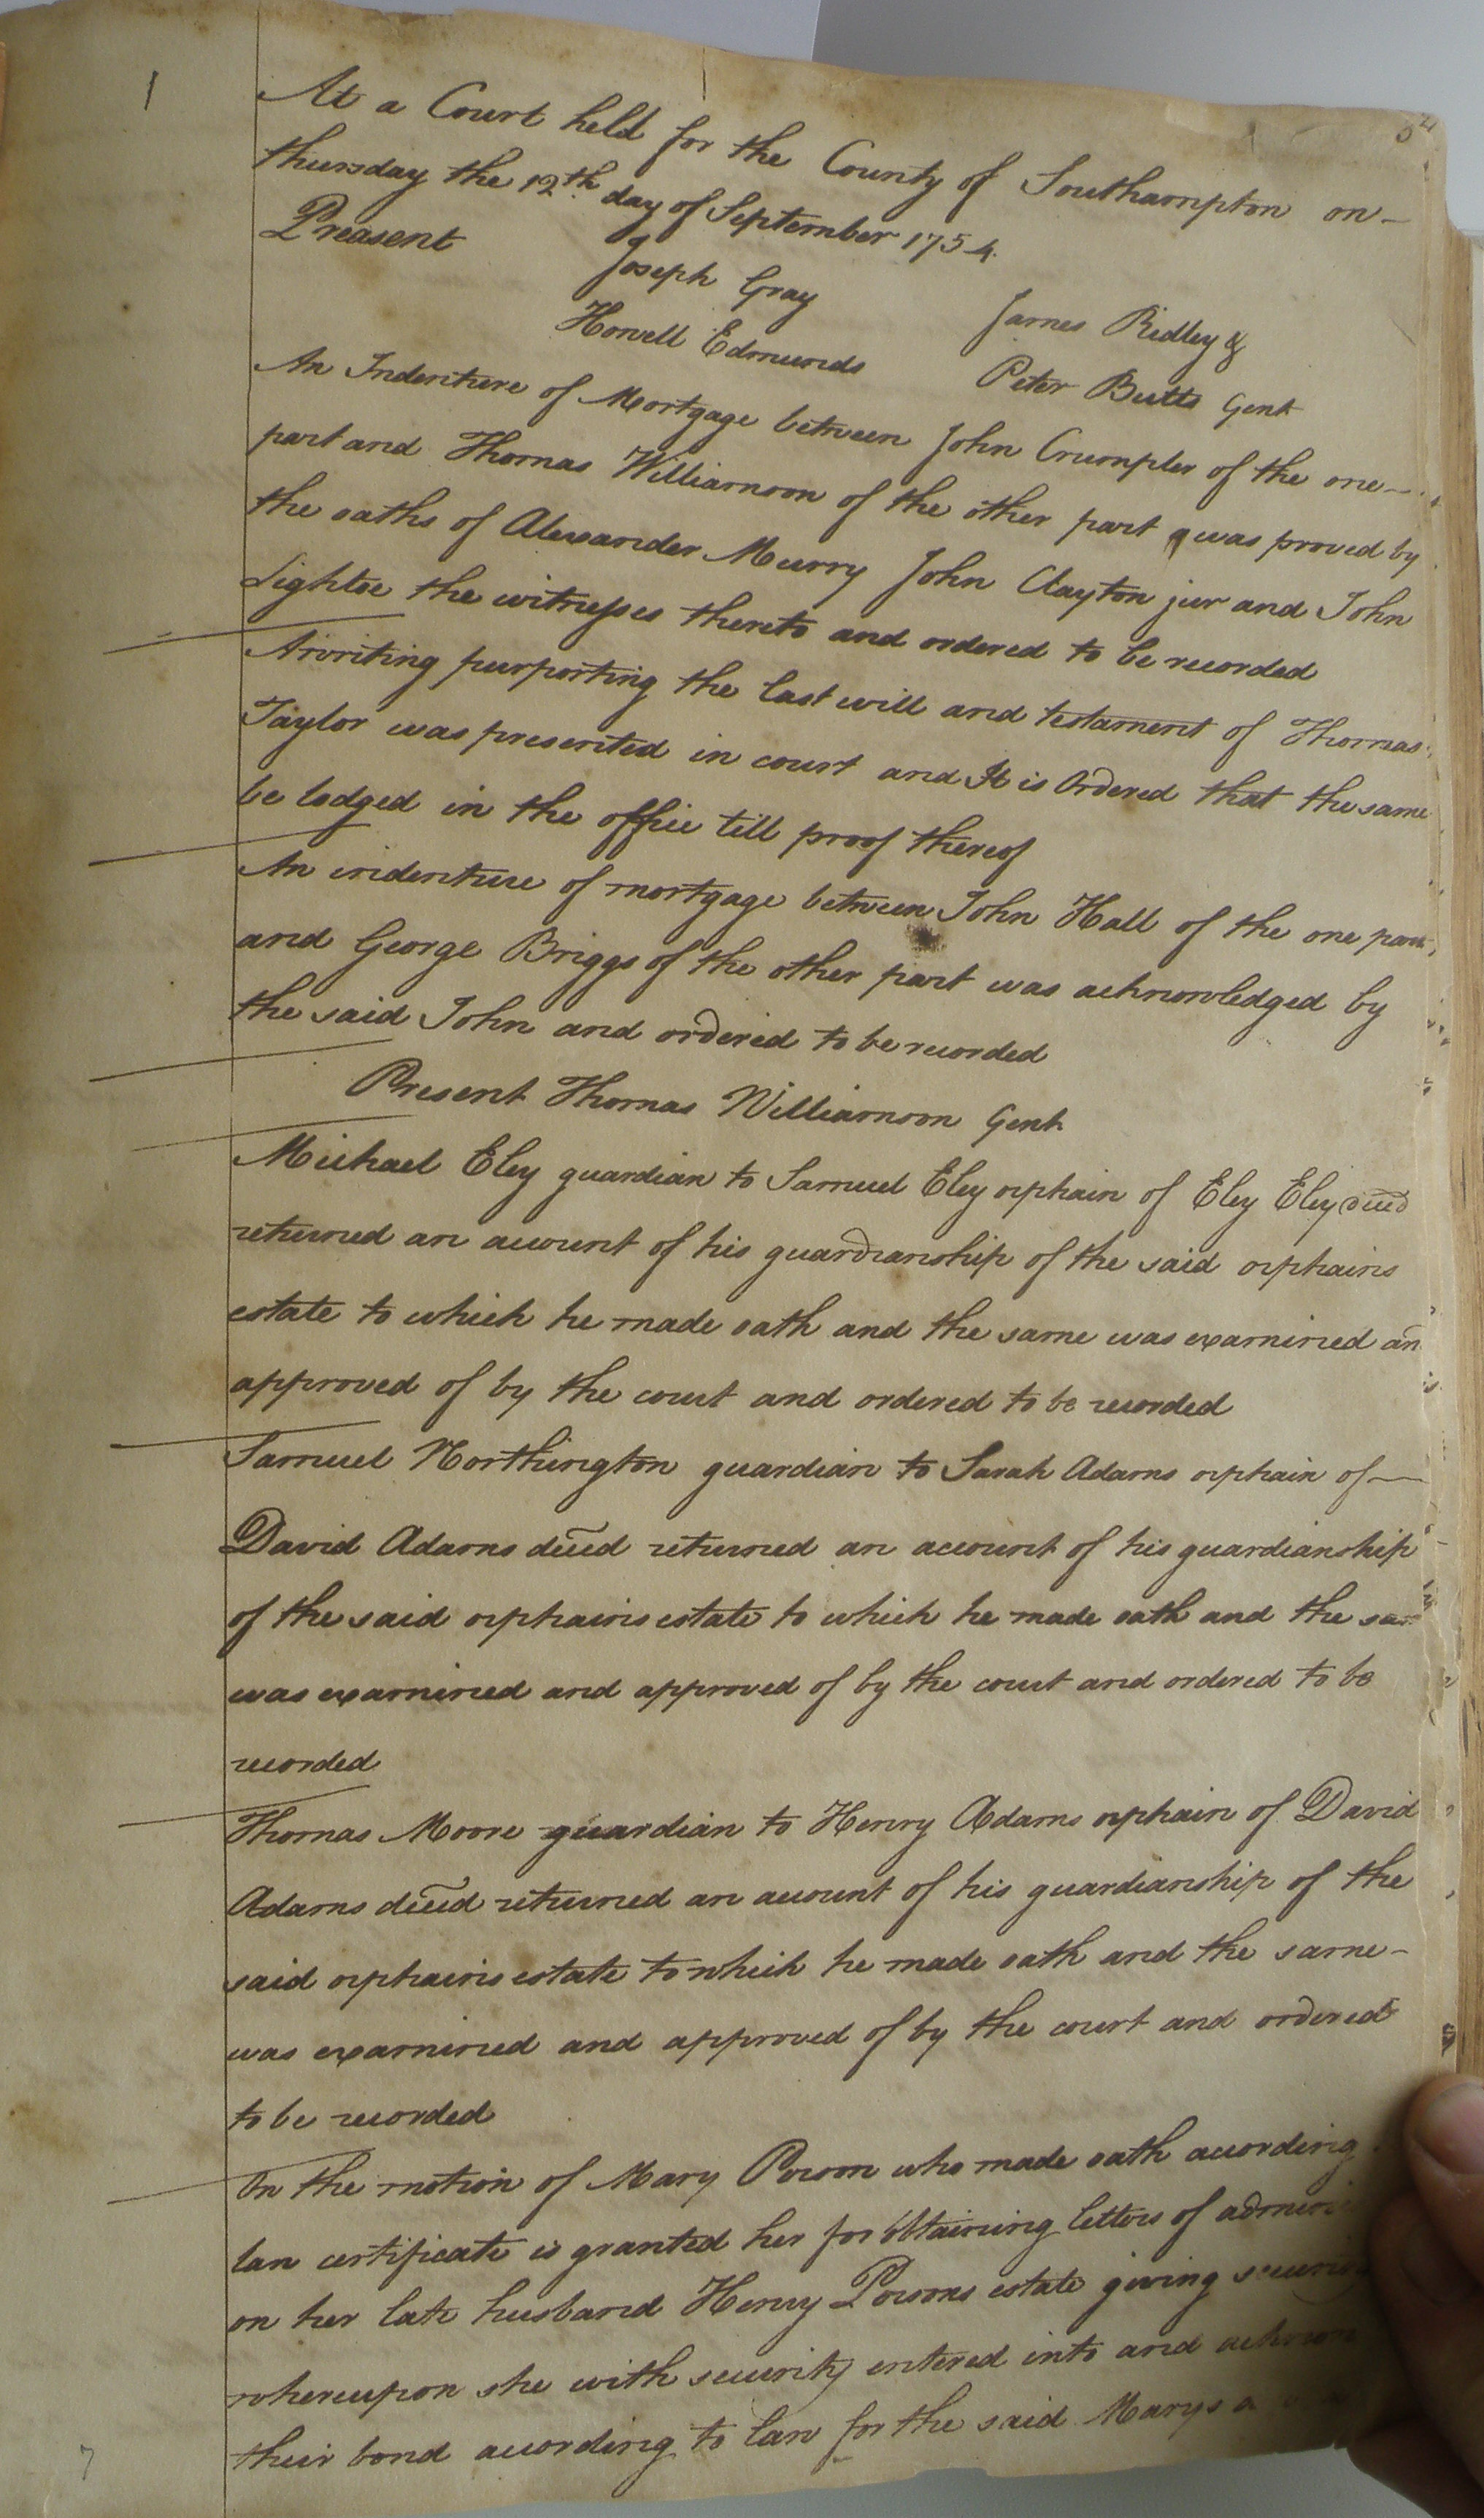 1
At a Court held for the County of Southampton on-
thursday the 12th. day of September 1754.
Preasent
Joseph Gray
James Ridley &
Howell Edmunds
Peter Butts Gent
An Indenture of Mortgage between John Crumpler of the one-
part and Thomas Williamson of the other part was proved by
the oaths of Alexander Murry John Clayton jur and John
Lightoe the witnesses thereto and ordered to be recorded
A writing purporting the last will and testament of Thomas
Taylor was presented in court and It is Ordered that the same
be lodged in the office till proof thereof
An indenture of mortgage between John Hall of the one part
and George Briggs of the other part was acknowledged by
the said John and ordered to be recorded
Present Thomas Williamson Gent
Michael Eley guardian to Samuel Eley orphain of Eley Eley decd
returned an account of his guardianship of the said orphains
estate to which he made oath and the same was examined an
approved of by the court and ordered to be recorded
Samuel Northington guardian to Sarah Adams orphain of-
David Adams decd returned an account of his guardianship
of the said orphains estate to which he made oath and the
was examined and approved of by the court and ordered to be
recorded
Thomas Moore guardian to Henry Adams orphain of David
Adams decd returned an account of his guardianship of the
said orphains estate to which he made oath and the same-
was examined and approved of by the court and ordered
to be recorded
On the motion of Mary Powon who made oath according
law certificate is granted her for obtaining letters of
on her late husband Henry Powons estate giving
whereupon she with security entered into and
their bond according to law for the said Marys
7